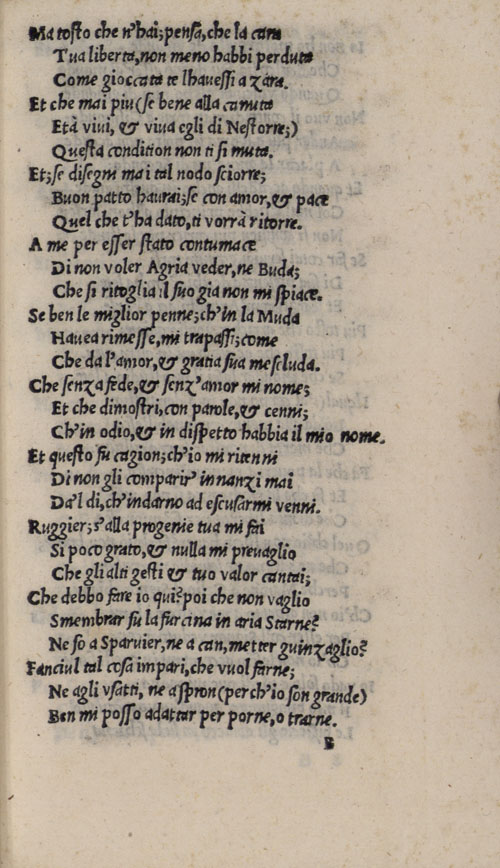 Ma tosto che n'hai; pensa, che la cara
Tua liberta, non meno habbi perduta
Come gioccata te lhauessi a zara.
Et che mai piu (se bene alla canuta
Età viui, & viua egli di Nestorre;)
Questa condition non ti si muta.
Et; se disegni mai tal nodo sciorre;
Buon patto haurai; se con amor, & pace
Quel che t'ha dato, ti vorrà ritorre.
A me per esser stato contumace
Di non voler Agria veder, ne Buda;
Che si ritoglia il suo gia non mi spiace.
Se ben le miglior penne; ch'in la Muda
Hauea rimesse, mi trapassi; come
Che da l'amor, & gratia sua mescluda.
Che senza fede, & senz'amor mi nome;
Et che dimostri, con parole, & cenni;
Ch'in odio, & in dispetto habbia il mio nome.
Et questo fu cagion; ch'io mi ritenni
Di non gli comparir' innanzi mai
Da'l di, ch'indarno ad escusarmi venni.
Ruggier; s'alla progenie tua mi fai
Si poco grato, & nulla mi preuaglio
Che gli alti gesti & tuo valor cantai;
Che debbo fare io qui? poi che non vaglio
Smembrar su la furcina in aria Starne?
Ne so a Sparuier, ne a can, metter guinzaglio?
Fanciul tal cosa impari, che vuol farne;
Ne agli vsatti, ne a spron (perch'io son grande)
Ben mi posso adattar per porne, o trarne.
B